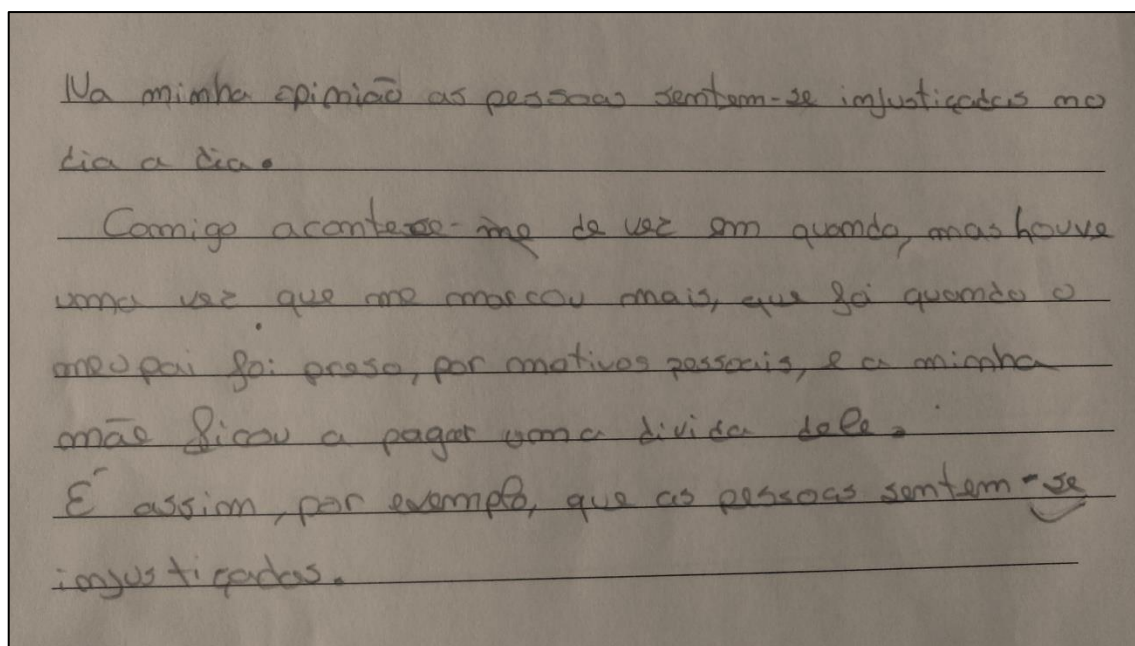 Na minha opinião as pessoas sentem-se injustiçadas no
dia a dia.
Comigo acontece-me de vez em quando, mas houve
uma vez que me marcou mais, que foi quando o
meu pai foi preso, por motivos pessoais, e a minha
mãe ficou a pagar uma divida dele.
É assim, por exemplo, que as pessoas sentem-se
injustiçadas.